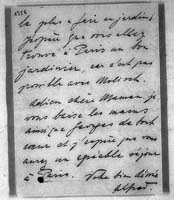 le plus à faire en jardins
j'espère que vous allez
trouver à Paris un bon
jardinier, car c'est pas
possible avec
Adieu chère Maman je
vous baise les mains
ainsi que Georges de tout
cœur et j'espère que vous
aurez un agréable séjour
à Paris. Votre bien dévoué
Alfred.